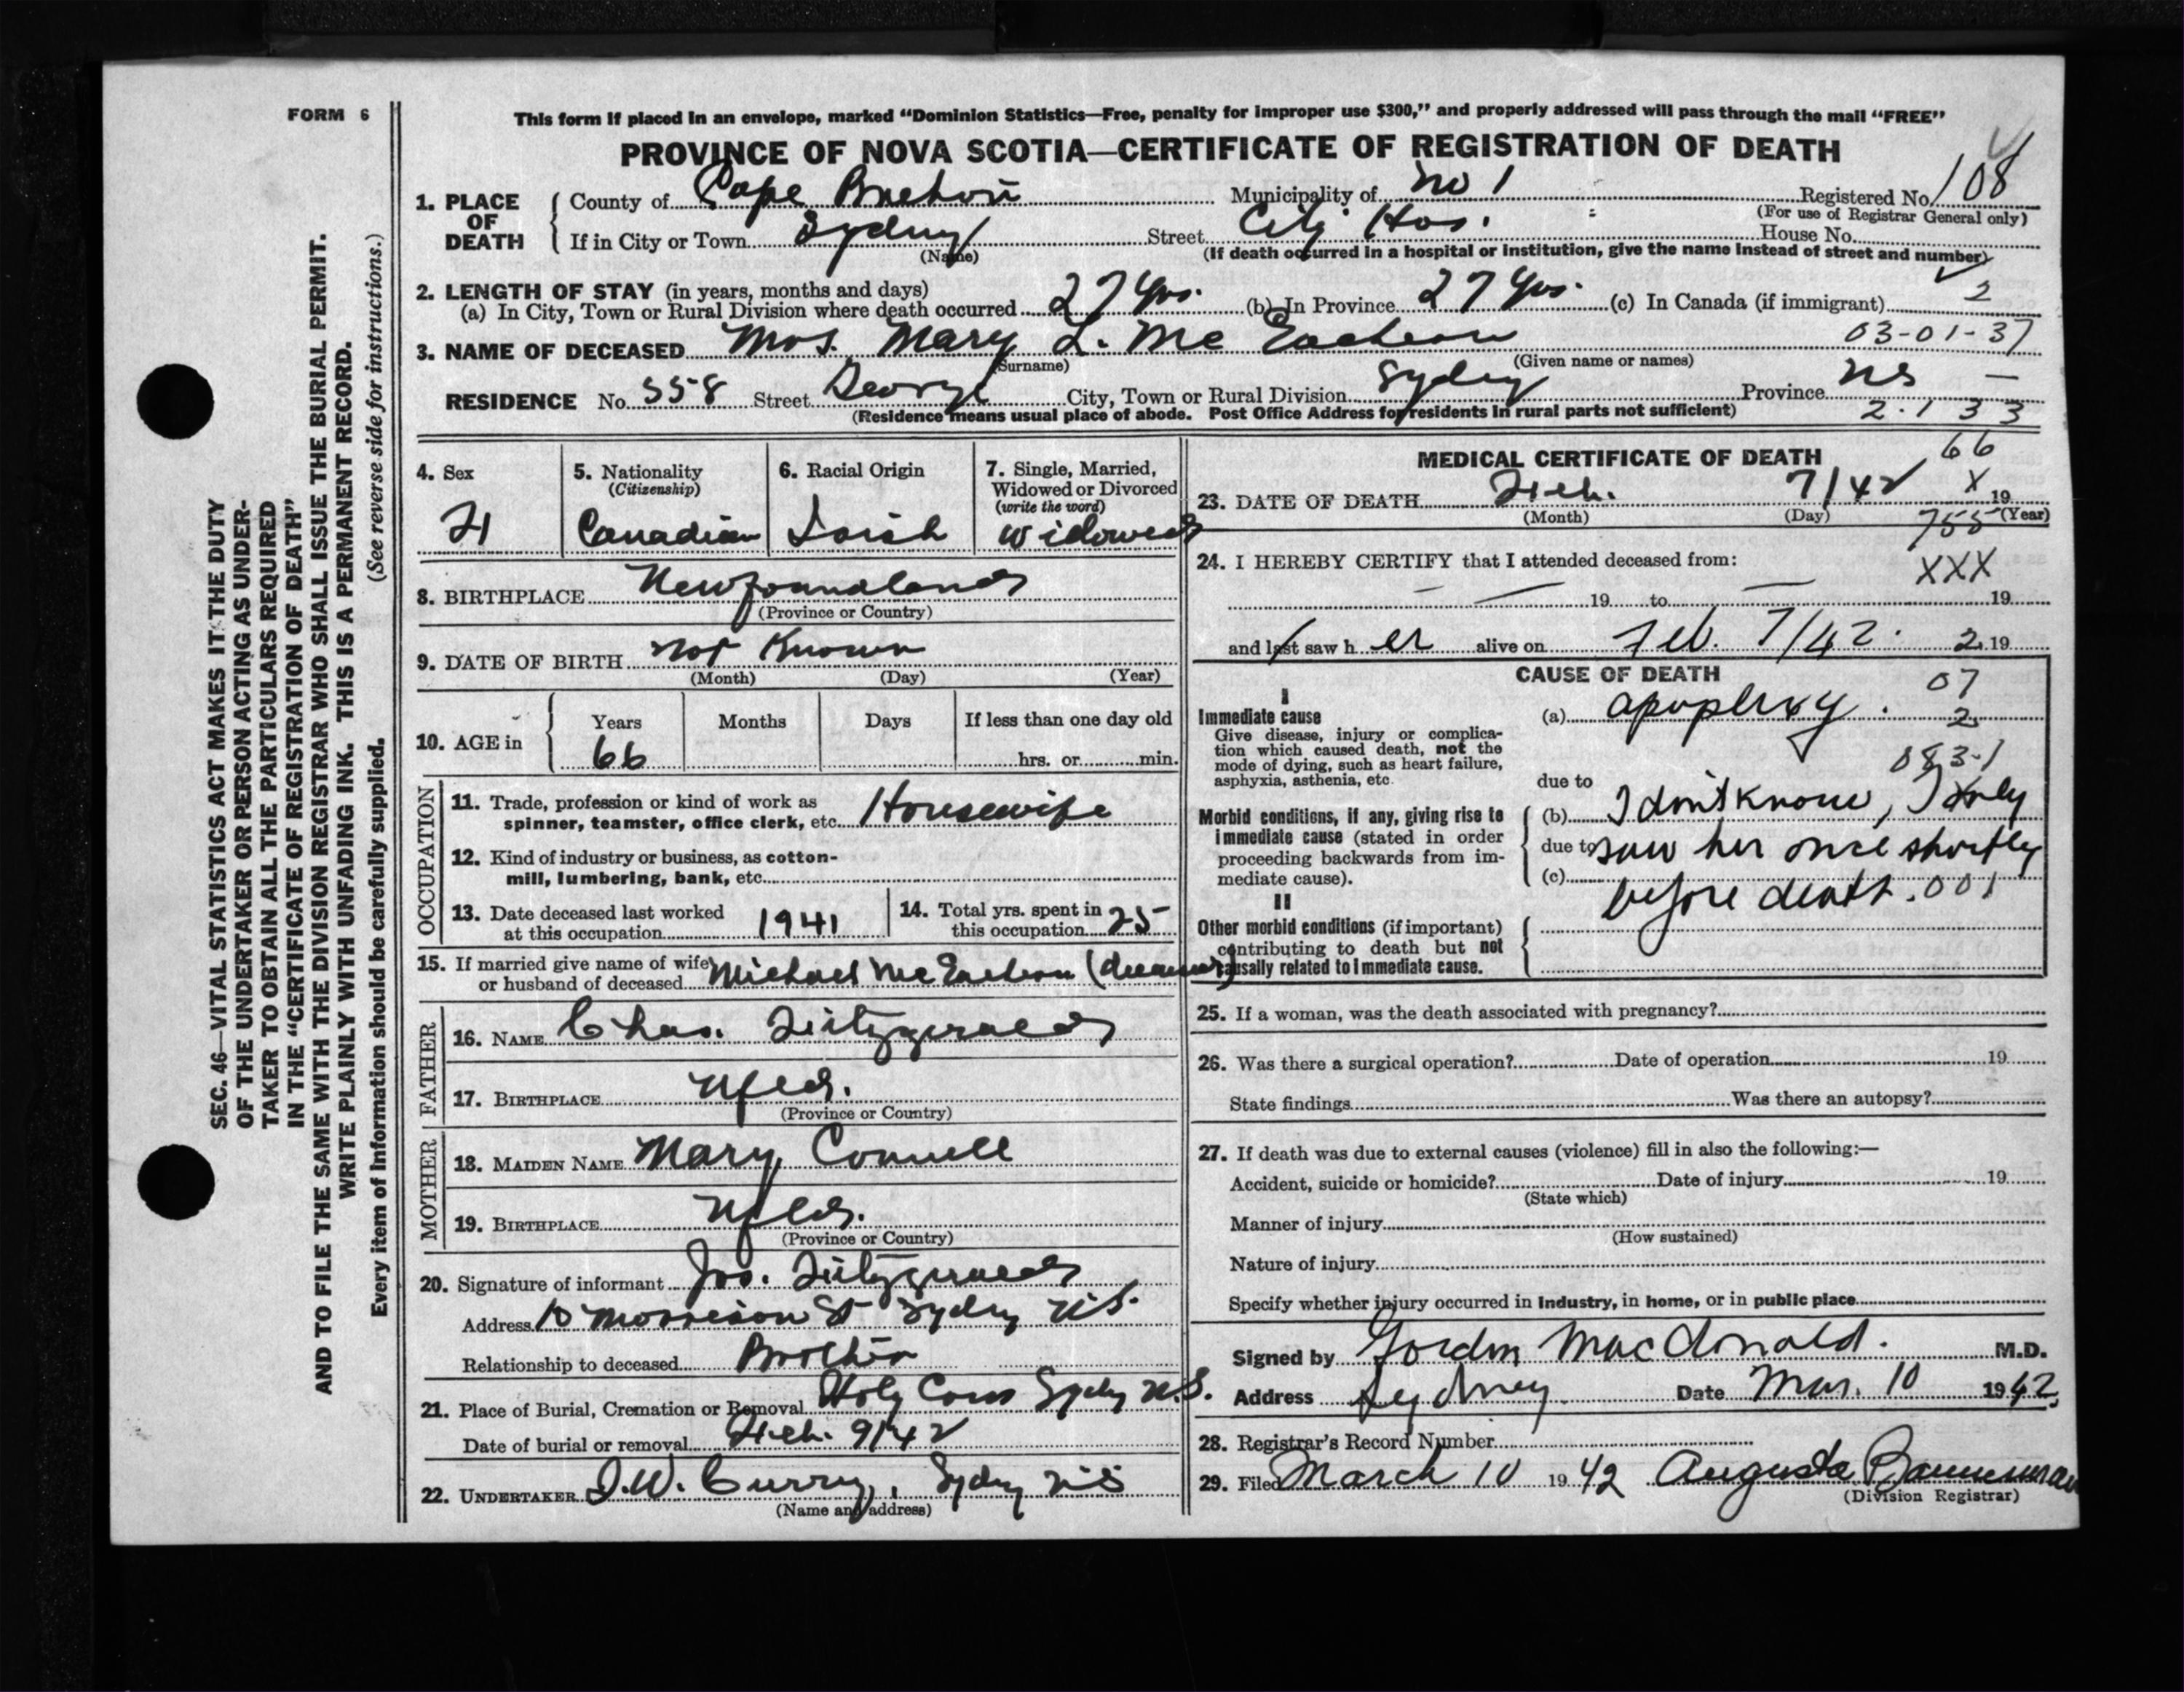 FORM 6
This form if placed in an envelope, marked “Dominion Statistics—Free, penalty for improper use $300,” and properly addressed will pass through the mail “FREE”
PROVINCE OF NOVA SCOTIA—CERTIFICATE OF REGISTRATION OF DEATH
1. PLACE OF DEATH
County of Cape Breton Municipality of No 1 Registered No. 108
(For use of Registrar General only)
If in City or Town Sydney Street City Hos. House No.
(Name) (If death occurred in a hospital or institution, give the name instead of street and number)
2. LENGTH OF STAY (in years, months and days)
(a) In City, Town or Rural Division where death occurred 27 yrs. (b) In Province 27 yrs. (c) In Canada (if immigrant) 2
3. NAME OF DECEASED Mrs. Mary L. Mc Eachern 03-01-37
(Surname) (Given name or names)
RESIDENCE No. 558 Street George City, Town or Rural Division Sydney Province NS —
(Residence means usual place of abode. Post Office Address for residents in rural parts not sufficient) 2·1 3 3
4. Sex
F
5. Nationality
(Citizenship)
Canadian
6. Racial Origin
Irish
7. Single, Married, Widowed or Divorced
(write the word)
Widowed
8. BIRTHPLACE Newfoundland
(Province or Country)
9. DATE OF BIRTH Not Known
(Month) (Day) (Year)
10. AGE in
Years Months Days If less than one day old
66 hrs. or min.
OCCUPATION
11. Trade, profession or kind of work as
spinner, teamster, office clerk, etc. Housewife
12. Kind of industry or business, as cotton-
mill, lumbering, bank, etc.
13. Date deceased last worked
at this occupation 1941
14. Total yrs. spent in
this occupation 25
15. If married give name of wife
or husband of deceased Michael Mc Eachern (deceased)
FATHER
16. NAME Chas. Fitzgerald
17. BIRTHPLACE Nfld.
(Province or Country)
MOTHER
18. MAIDEN NAME Mary Connell
19. BIRTHPLACE Nfld.
(Province or Country)
20. Signature of informant Jos. Fitzgerald
Address 10 Morrison St Sydney N.S.
Relationship to deceased Brother
21. Place of Burial, Cremation or Removal Holy Cross Sydney N.S.
Date of burial or removal Feb. 9/42
22. UNDERTAKER J.W. Curry, Sydney NS
(Name and address)
MEDICAL CERTIFICATE OF DEATH 66
X
23. DATE OF DEATH Feb. 7/42 19
(Month) (Day) (Year)
755
24. I HEREBY CERTIFY that I attended deceased from:
XXX
— — 19 to — 19
and last saw h er alive on Feb. 7/42. 2 19
CAUSE OF DEATH
07
I
Immediate cause
Give disease, injury or complica-
tion which caused death, not the
mode of dying, such as heart failure,
asphyxia, asthenia, etc.
(a) apoplexy. 2
083-1
due to
Morbid conditions, if any, giving rise to
immediate cause (stated in order
proceeding backwards from im-
mediate cause).
(b) I don't know, I only
due to saw her once shortly
(c) before death. 001
II
Other morbid conditions (if important)
contributing to death but not
causally related to immediate cause.
25. If a woman, was the death associated with pregnancy?
26. Was there a surgical operation? Date of operation 19
State findings Was there an autopsy?
27. If death was due to external causes (violence) fill in also the following:—
Accident, suicide or homicide? Date of injury 19
(State which)
Manner of injury
(How sustained)
Nature of injury
Specify whether injury occurred in industry, in home, or in public place
Signed by Gordon MacDonald. M.D.
Address Sydney Date Mar. 10 1942.
28. Registrar's Record Number
29. Filed March 10 1942 Augusta Bannerman
(Division Registrar)
SEC. 46—VITAL STATISTICS ACT MAKES IT THE DUTY
OF THE UNDERTAKER OR PERSON ACTING AS UNDER-
TAKER TO OBTAIN ALL THE PARTICULARS REQUIRED
IN THE “CERTIFICATE OF REGISTRATION OF DEATH”
AND TO FILE THE SAME WITH THE DIVISION REGISTRAR WHO SHALL ISSUE THE BURIAL PERMIT.
WRITE PLAINLY WITH UNFADING INK. THIS IS A PERMANENT RECORD.
(See reverse side for instructions.)
Every item of information should be carefully supplied.